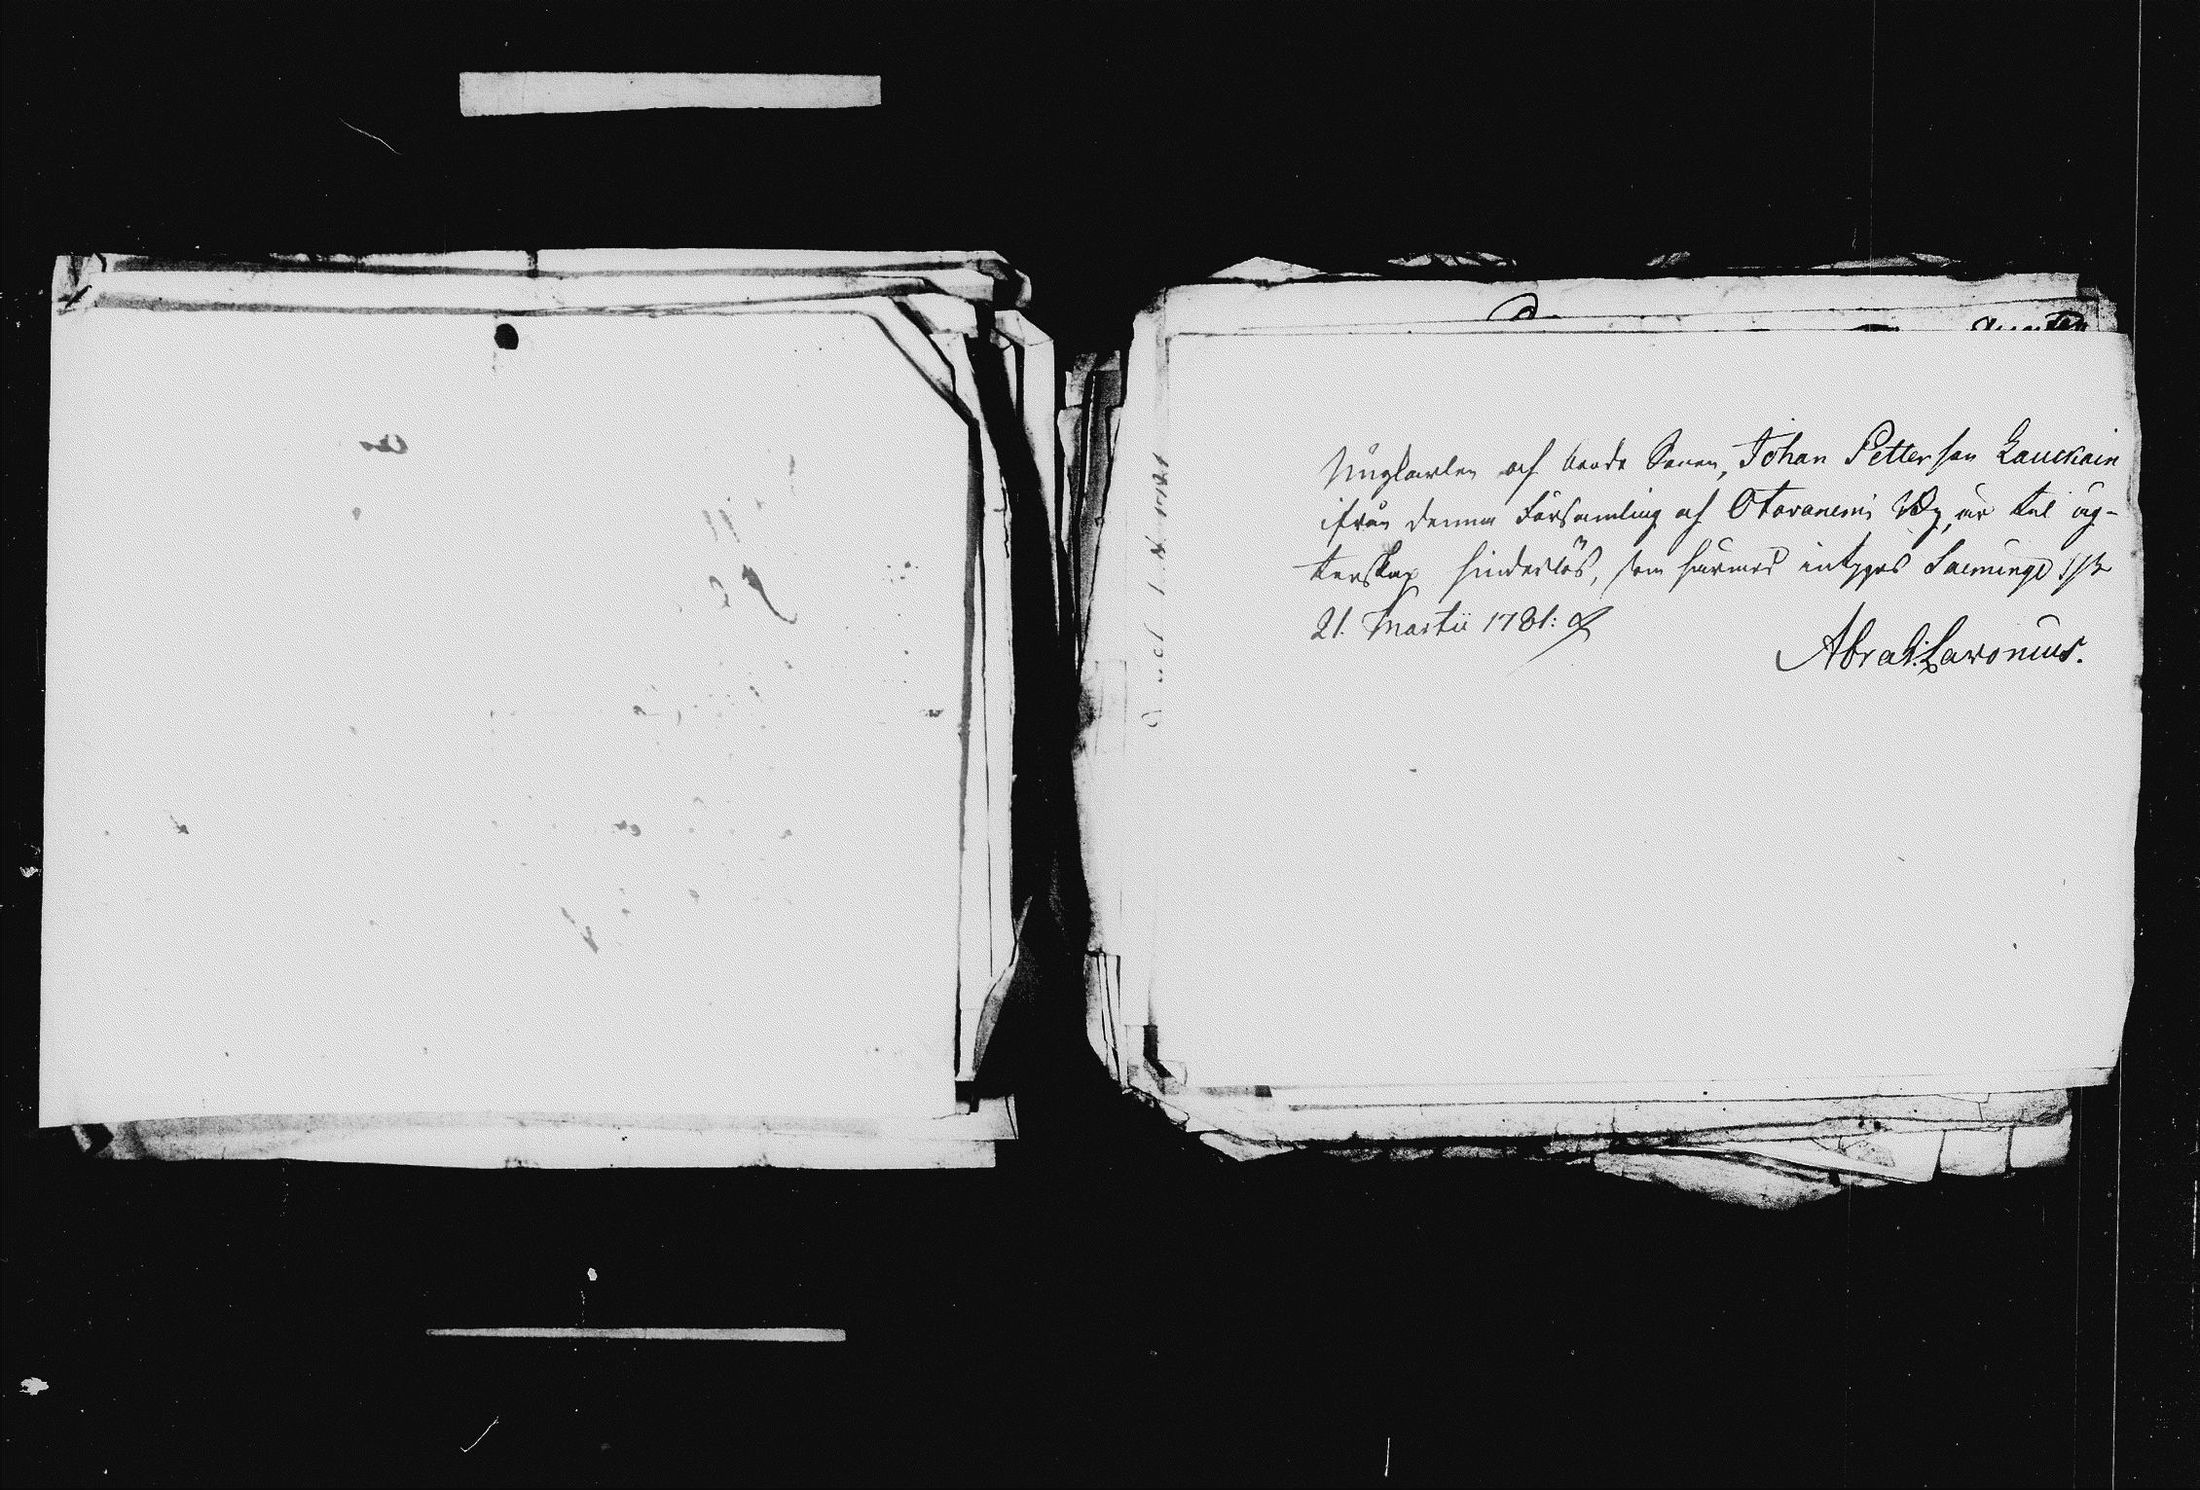 Ungkarlen af bonde Sonen, Johan Petterson Lauckain
ifrån denna Församling af Otavanemi By, är til äg-
tenskap hinderlös, som härmed intygas Sæminge
21. Martii 1781:
Abrah: Lavonius.